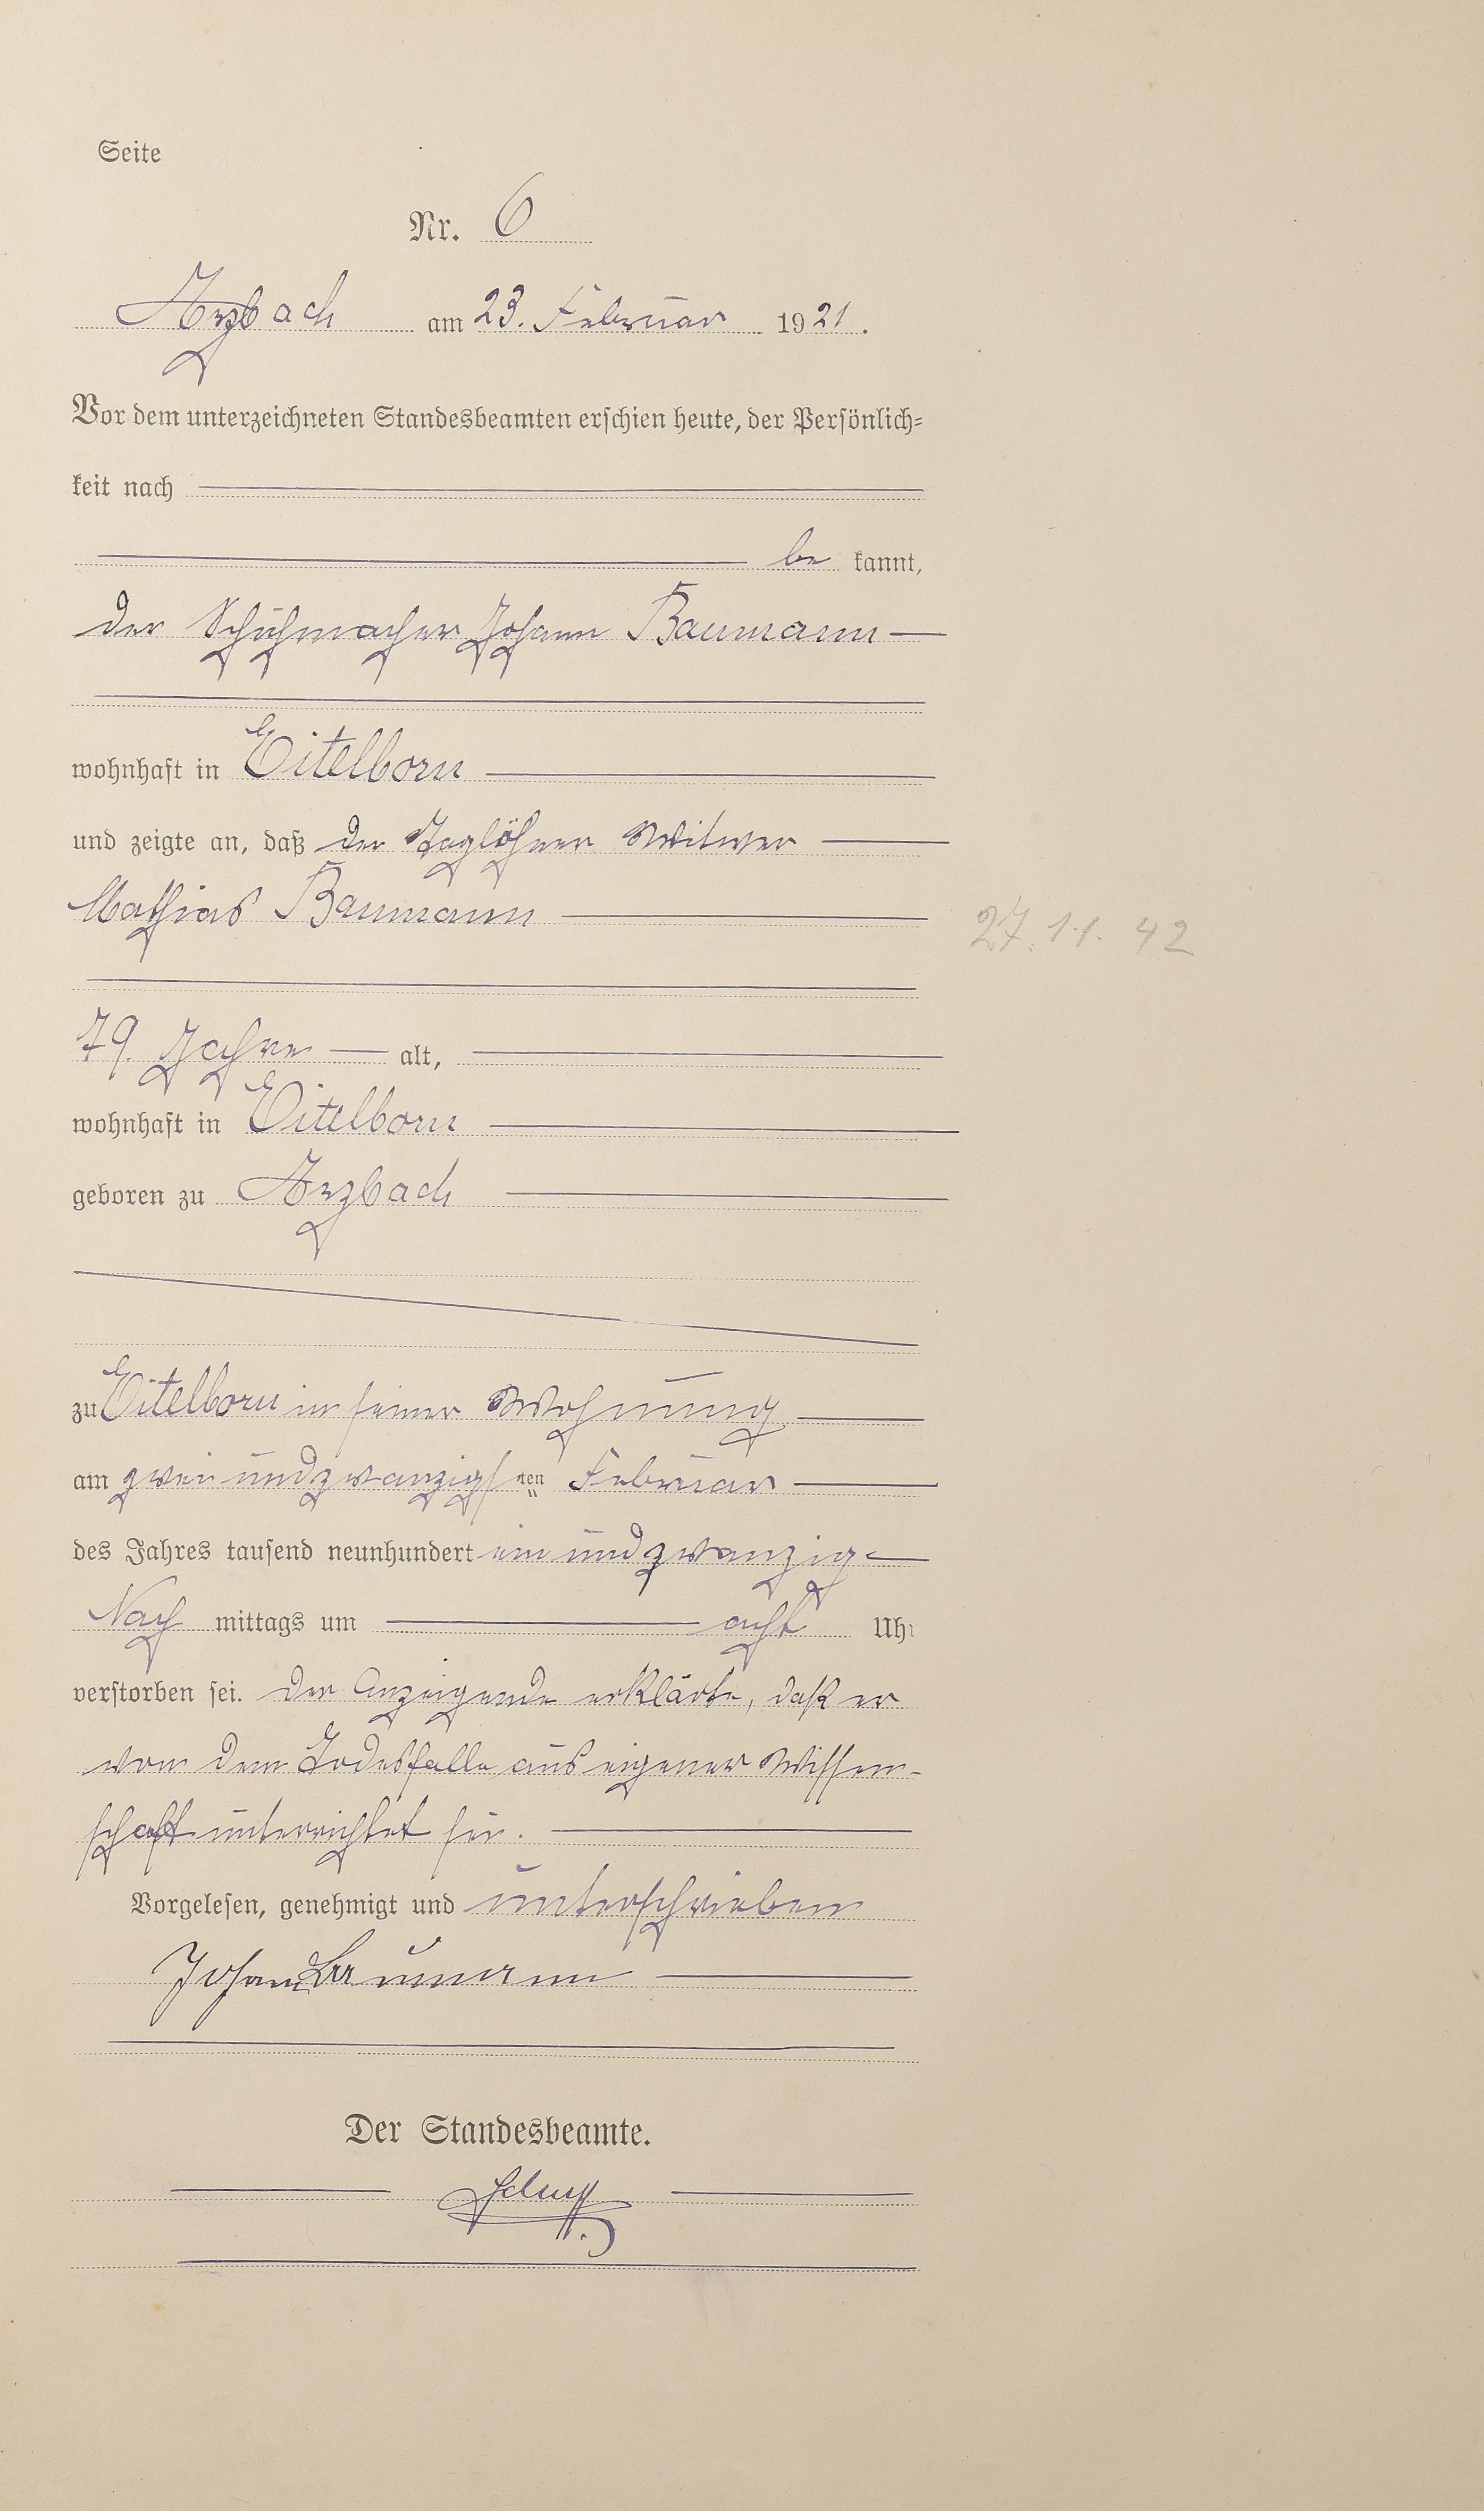 Seite
Nr. 6
Arzbach am 23. Februar 1921.
Vor dem unterzeichneten Standesbeamten erschien heute, der Persönlich=
keit nach
be kannt,
der Schuhmacher Johann Baumann
wohnhaft in Eitelborn
und zeigte an, daß der Taglöhner Witwer
Mathias Baumann
27.11.42
79. Jahre alt,
wohnhaft in Eitelborn
geboren zu Arzbach
zu Eitelborn in seiner Wohnung
am zwei und zwanzigsten Februar
des Jahres tausend neunhundert ein und zwanzig
Nach mittags um acht Uhr
verstorben sei. Der Anzeigende erklärte, daß er
von dem Todesfalle aus eigener Wissen-
schaft unterrichtet sei.
Vorgelesen, genehmigt und unterschrieben
Johann Baumann
Der Standesbeamte.